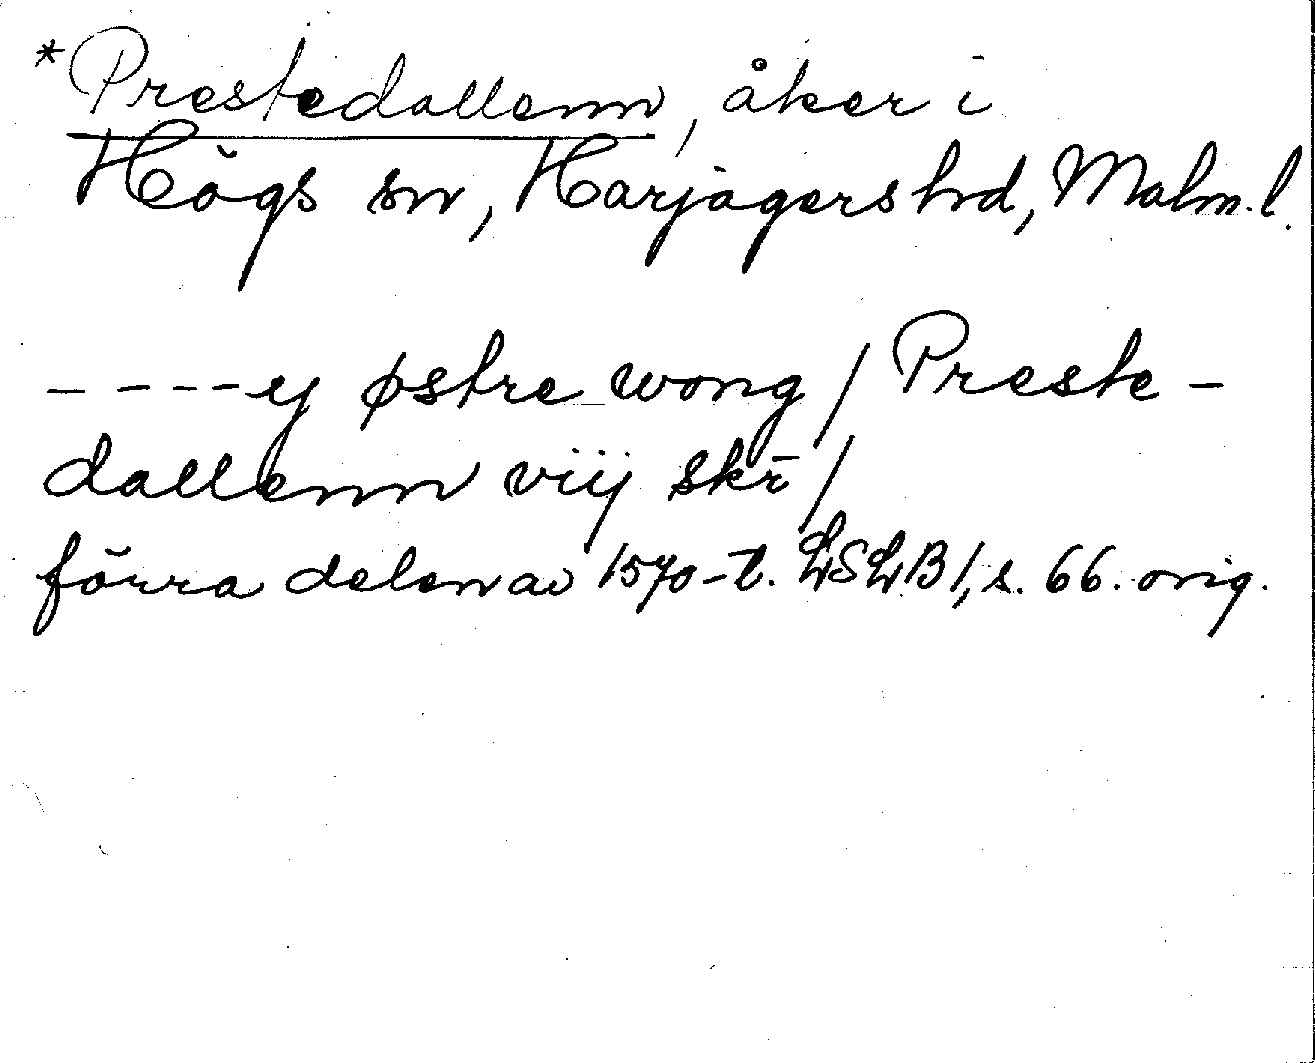 *Prestedallenn, åker i
Högs sn, Harjagers hd, Malm.l.
- - - - ej østre wong / Preste-
dallenn viij skr̄ /
förra delen av 1570-t. LSLB 1, s. 66. orig.